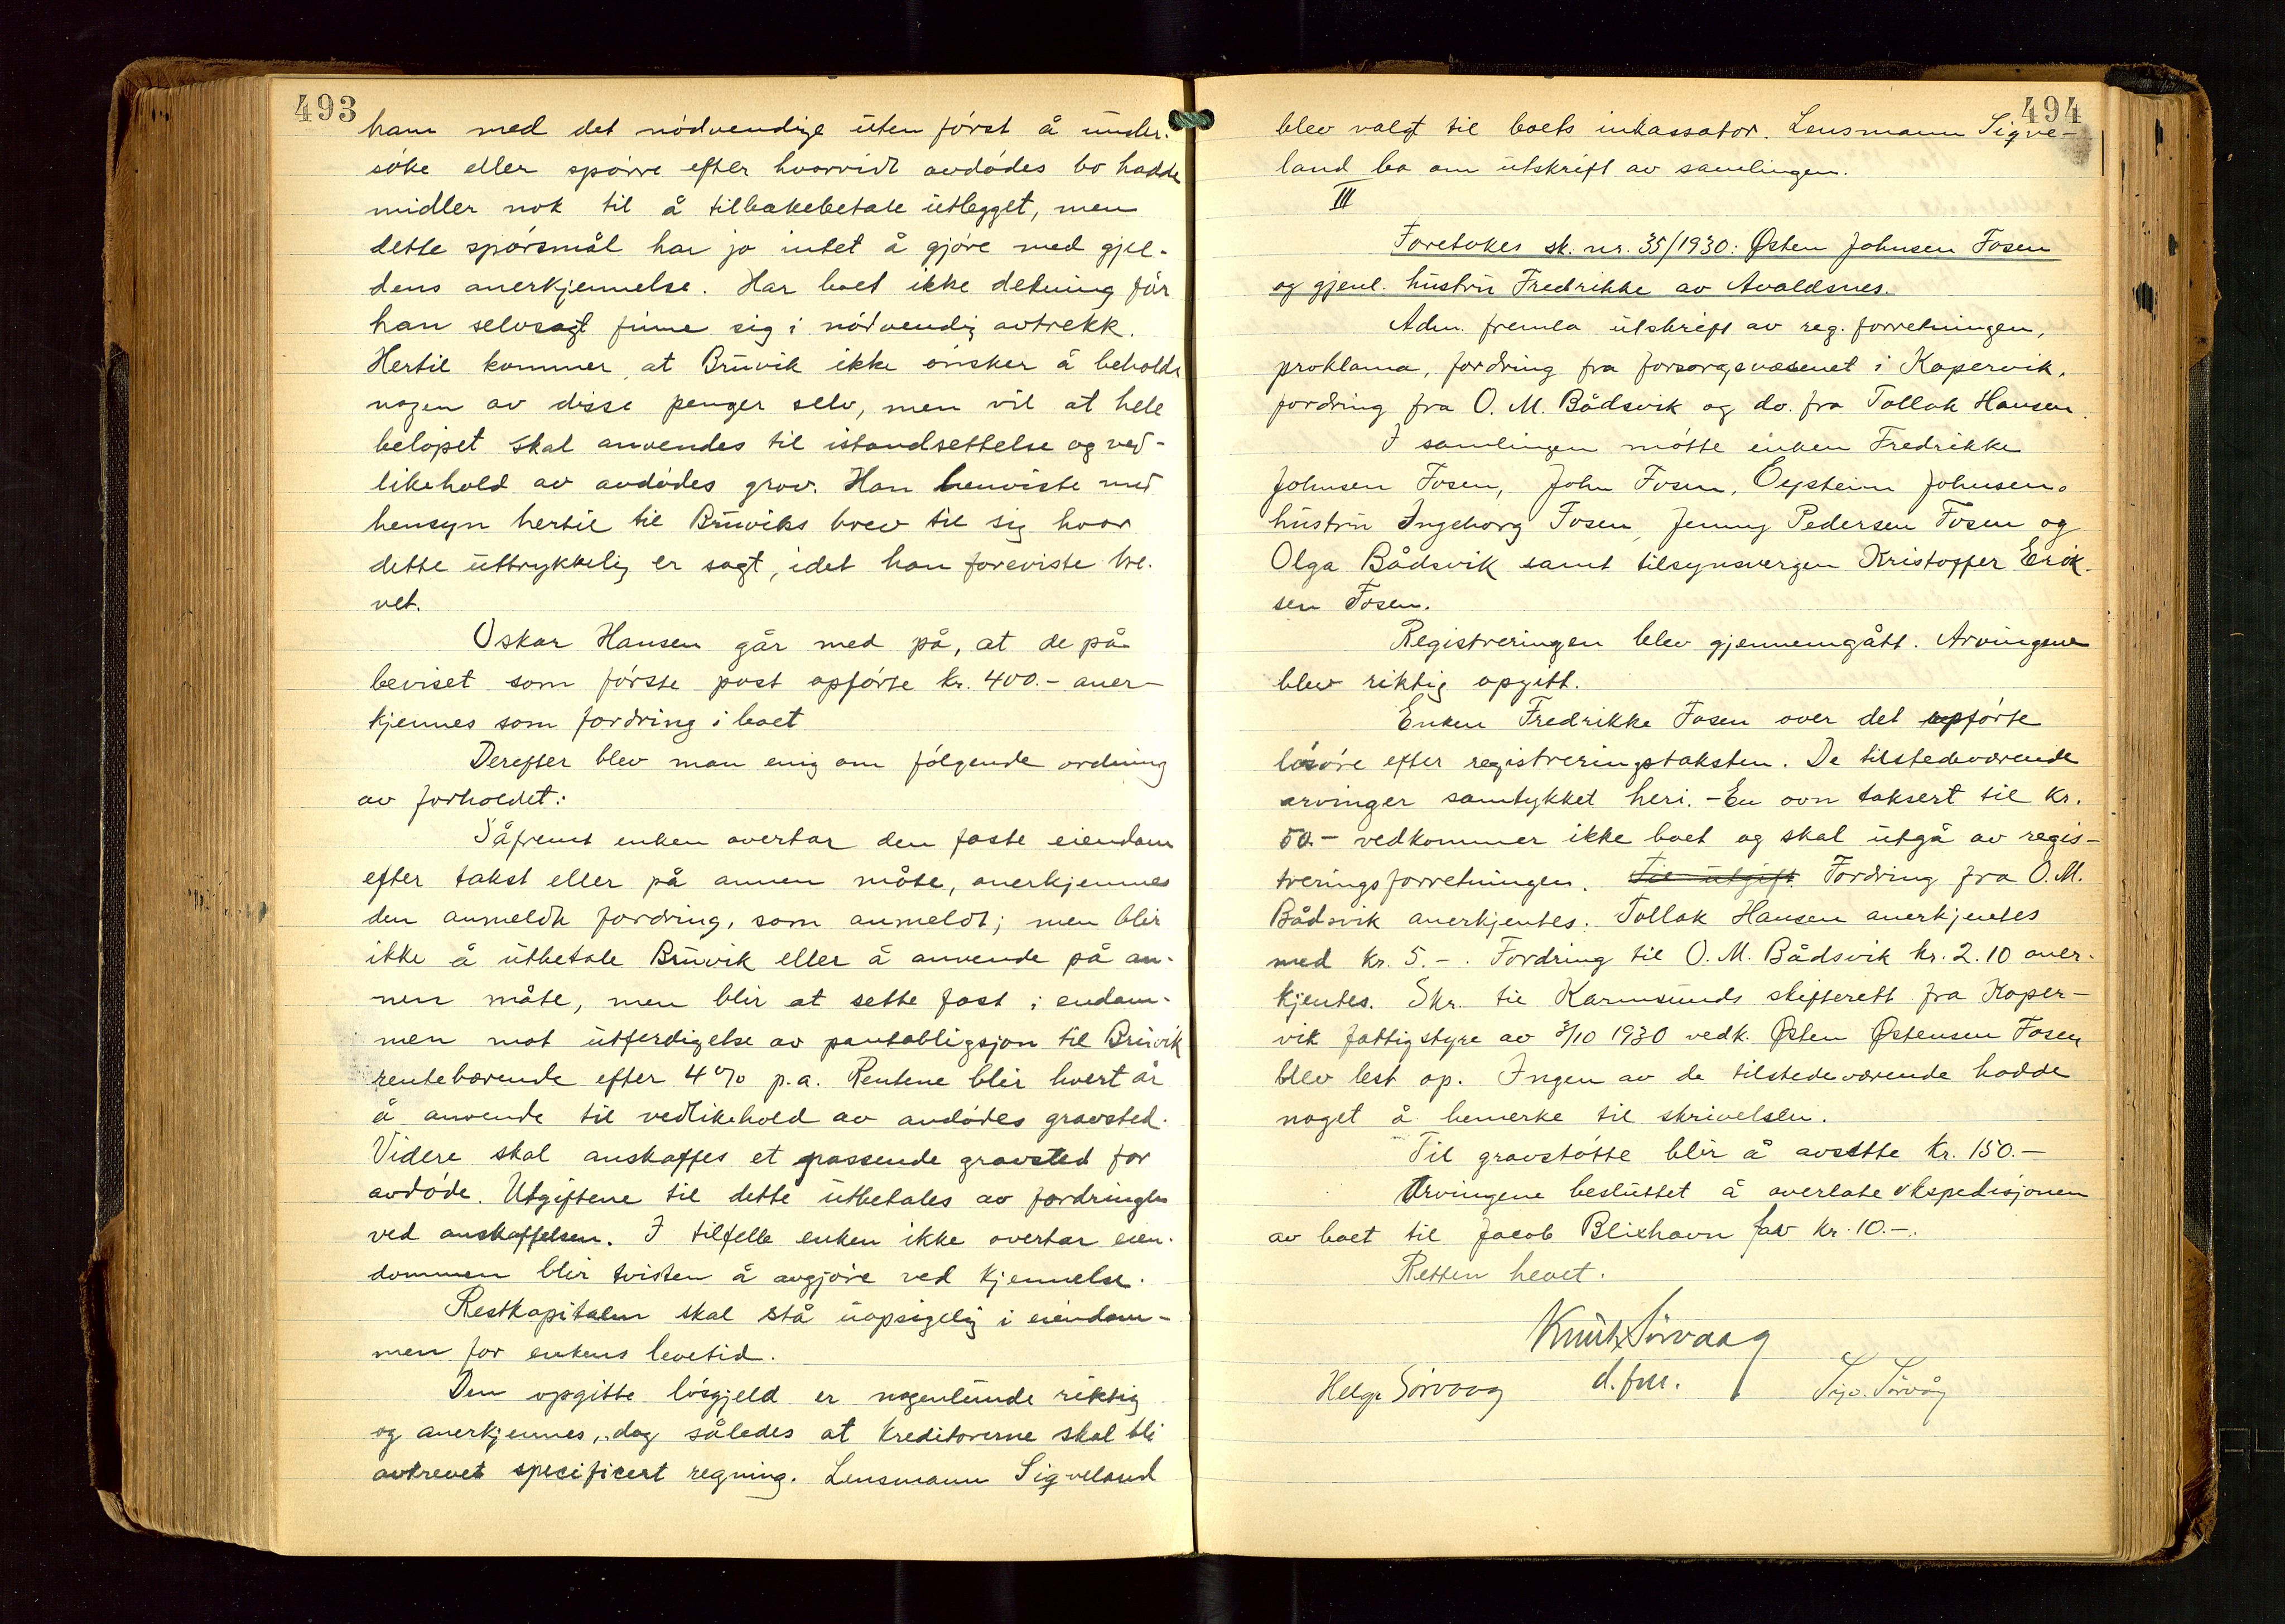 493
ham med det nödvendige uten först å under-
söke eller spörre efter hvorvidt avdödes bo hadde
midler nok til å tilbakebetale utlegget, men
dette spörsmål har jo intet å gjöre med gjel-
dens anerkjennelse. Har boet ikke dekning får
han selvsagt finne sig i nödvendig avtrekk.
Hertil kommer, at Bruvik ikke önsker å beholde
nogen av disse penger selv, men vil at hele
belöpet skal anvendes til istandsettelse og ved-
likehold av avdödes grav. Han henviste med
hensyn hertil til Bruviks brev til sig hvor
dette uttrykkelig er sagt, idet han foreviste bre-
vet.
Oskar Hansen går med på, at de på
beviset som förste post opförte kr. 400.- aner-
kjennes som fordring i boet
Derefter blev man enig om fölgende ordning
av forholdet:
Såfremt enken overtar den faste eiendom
efter takst eller på annen måte, anerkjennes
den anmeldte fordring, som anmeldt; men blir
ikke å utbetale Bruvik eller å anvende på an-
nen måte, men blir at sette fast i eiendom-
men mot utferdigelse av pantobligasjon til Bruvik
rentebærende efter 4% p.a. Rentene blir hvert år
å anvende til vedlikehold av avdödes gravsted.
Videre skal anskaffes et passende gravsted for
avdöde. Utgiftene til dette utbetales av fordringen
ved anskaffelsen. I tilfelle enken ikke overtar eien-
dommen blir tvisten å avgjöre ved kjennelse.
Restkapitalen skal stå uopsigelig i eiendom-
men for enkens levetid.
Den opgitte lösgjeld er nogenlunde riktig
og anerkjennes, dog således at kreditorerne skal bli
avkrevet specificert regning. Lensmann Sigveland
494
blev valgt til boets inkassator. Lensmann Sigve-
land ba om utskrift av samlingen.
III
Foretokes sk. nr. 35/1930: Østen Johnsen Fosen
og gjenl. hustru Fredrikke av Avaldsnes.
Adm. fremla utskrift av reg. forretningen,
proklama, fordring fra forsorgsvæsenet i Kopervik,
fordring fra O. M. Bådsvik og do. fra Tollak Hansen.
I samlingen mötte enken Fredrikke
Johnsen Fosen, John Fosen, Öystein Johnsen,
hustru Ingeborg Fosen, Jenny Pedersen Fosen og
Olga Bådsvik samt tilsynsvergen Kristoffer Erik-
sen Fosen.
Registreringen blev gjennemgått. Arvingene
blev riktig opgitt.
Enken Fredrikke Fosen over det opförte
lösöre efter registreringstaksten. De tilstedeværende
arvinger samtykket heri. - En ovn taksert til kr.
50.- vedkommer ikke boet og skal utgå av regis-
treringsforretningen. Til utgift Fordring fra O. M.
Bådsvik anerkjentes. Tollak Hansen anerkjentes
med kr. 5.-. Fordring til O. M. Bådsvik kr. 2.10 aner-
kjentes. Skr. til Karmsunds skifterett fra Koper-
vik fattigstyre av 3/10 1930 vedk. Østen Østensen Fosen
blev lest op. Ingen av de tilstedeværende hadde
noget å bemerke til skrivelsen.
Til gravstötte blir å avsette kr. 150.-
Arvingene besluttet å overlate ekspedisjonen
av boet til Jacob Blikhavn for kr. 10.-.
Retten hevet.
Knut Sörvaag
Helge Sörvaag d.fm. Sigv. Sörvåg